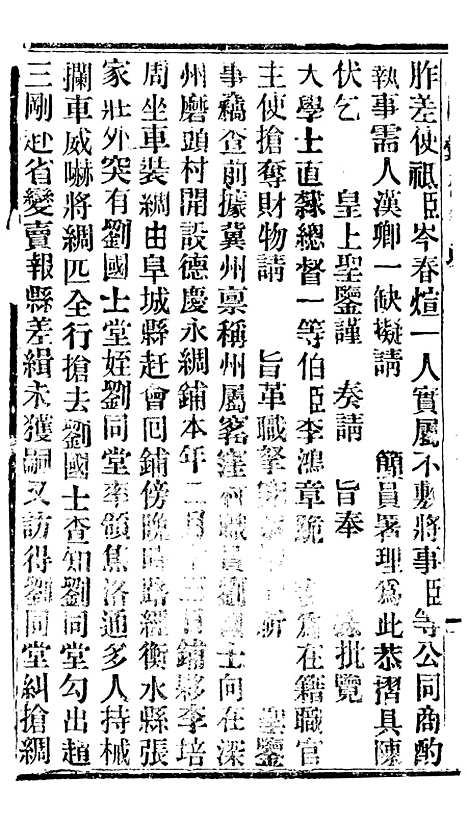 胙差使祗臣岑春煊一人實屬不敷將事臣等公同商酌
執事需人漢卿一缺擬請　簡員署理爲此恭摺具陳
伏乞　皇上聖鑒謹　奏請　旨奉　批覽
大學士直隸總督一等伯臣李鴻章跪　爲在籍職官
主使搶奪財物請　旨革職　聖鑒
事竊查前據冀州禀稱州屬窰窪村職員劉國士向在深
州磨頭村開設德慶永綢鋪本年二月　鋪夥李培
周坐車裝綢由阜城縣赶會囘鋪傍晚時路經衡水縣張
家庄外突有劉國士堂姪劉同堂率領焦洛通多人持械
攔車威嚇將綢匹全行搶去劉國士查知劉同堂勾出趙
三剛赴省變賣報縣差緝未獲嗣又訪得劉同堂糾搶綢